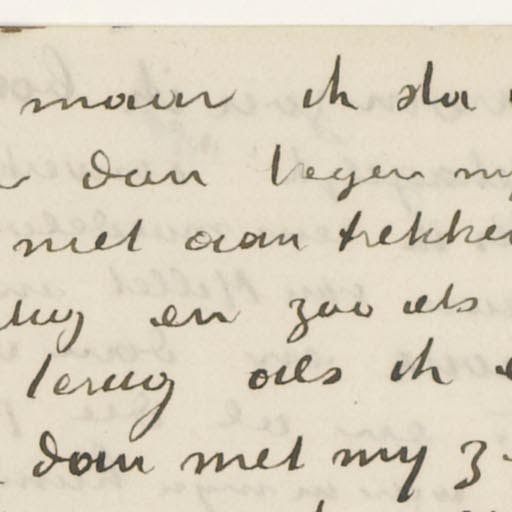 maar ik sla
dan tegen my
niet aan trekken
terug en zoo als
terug als ik
dan met my z